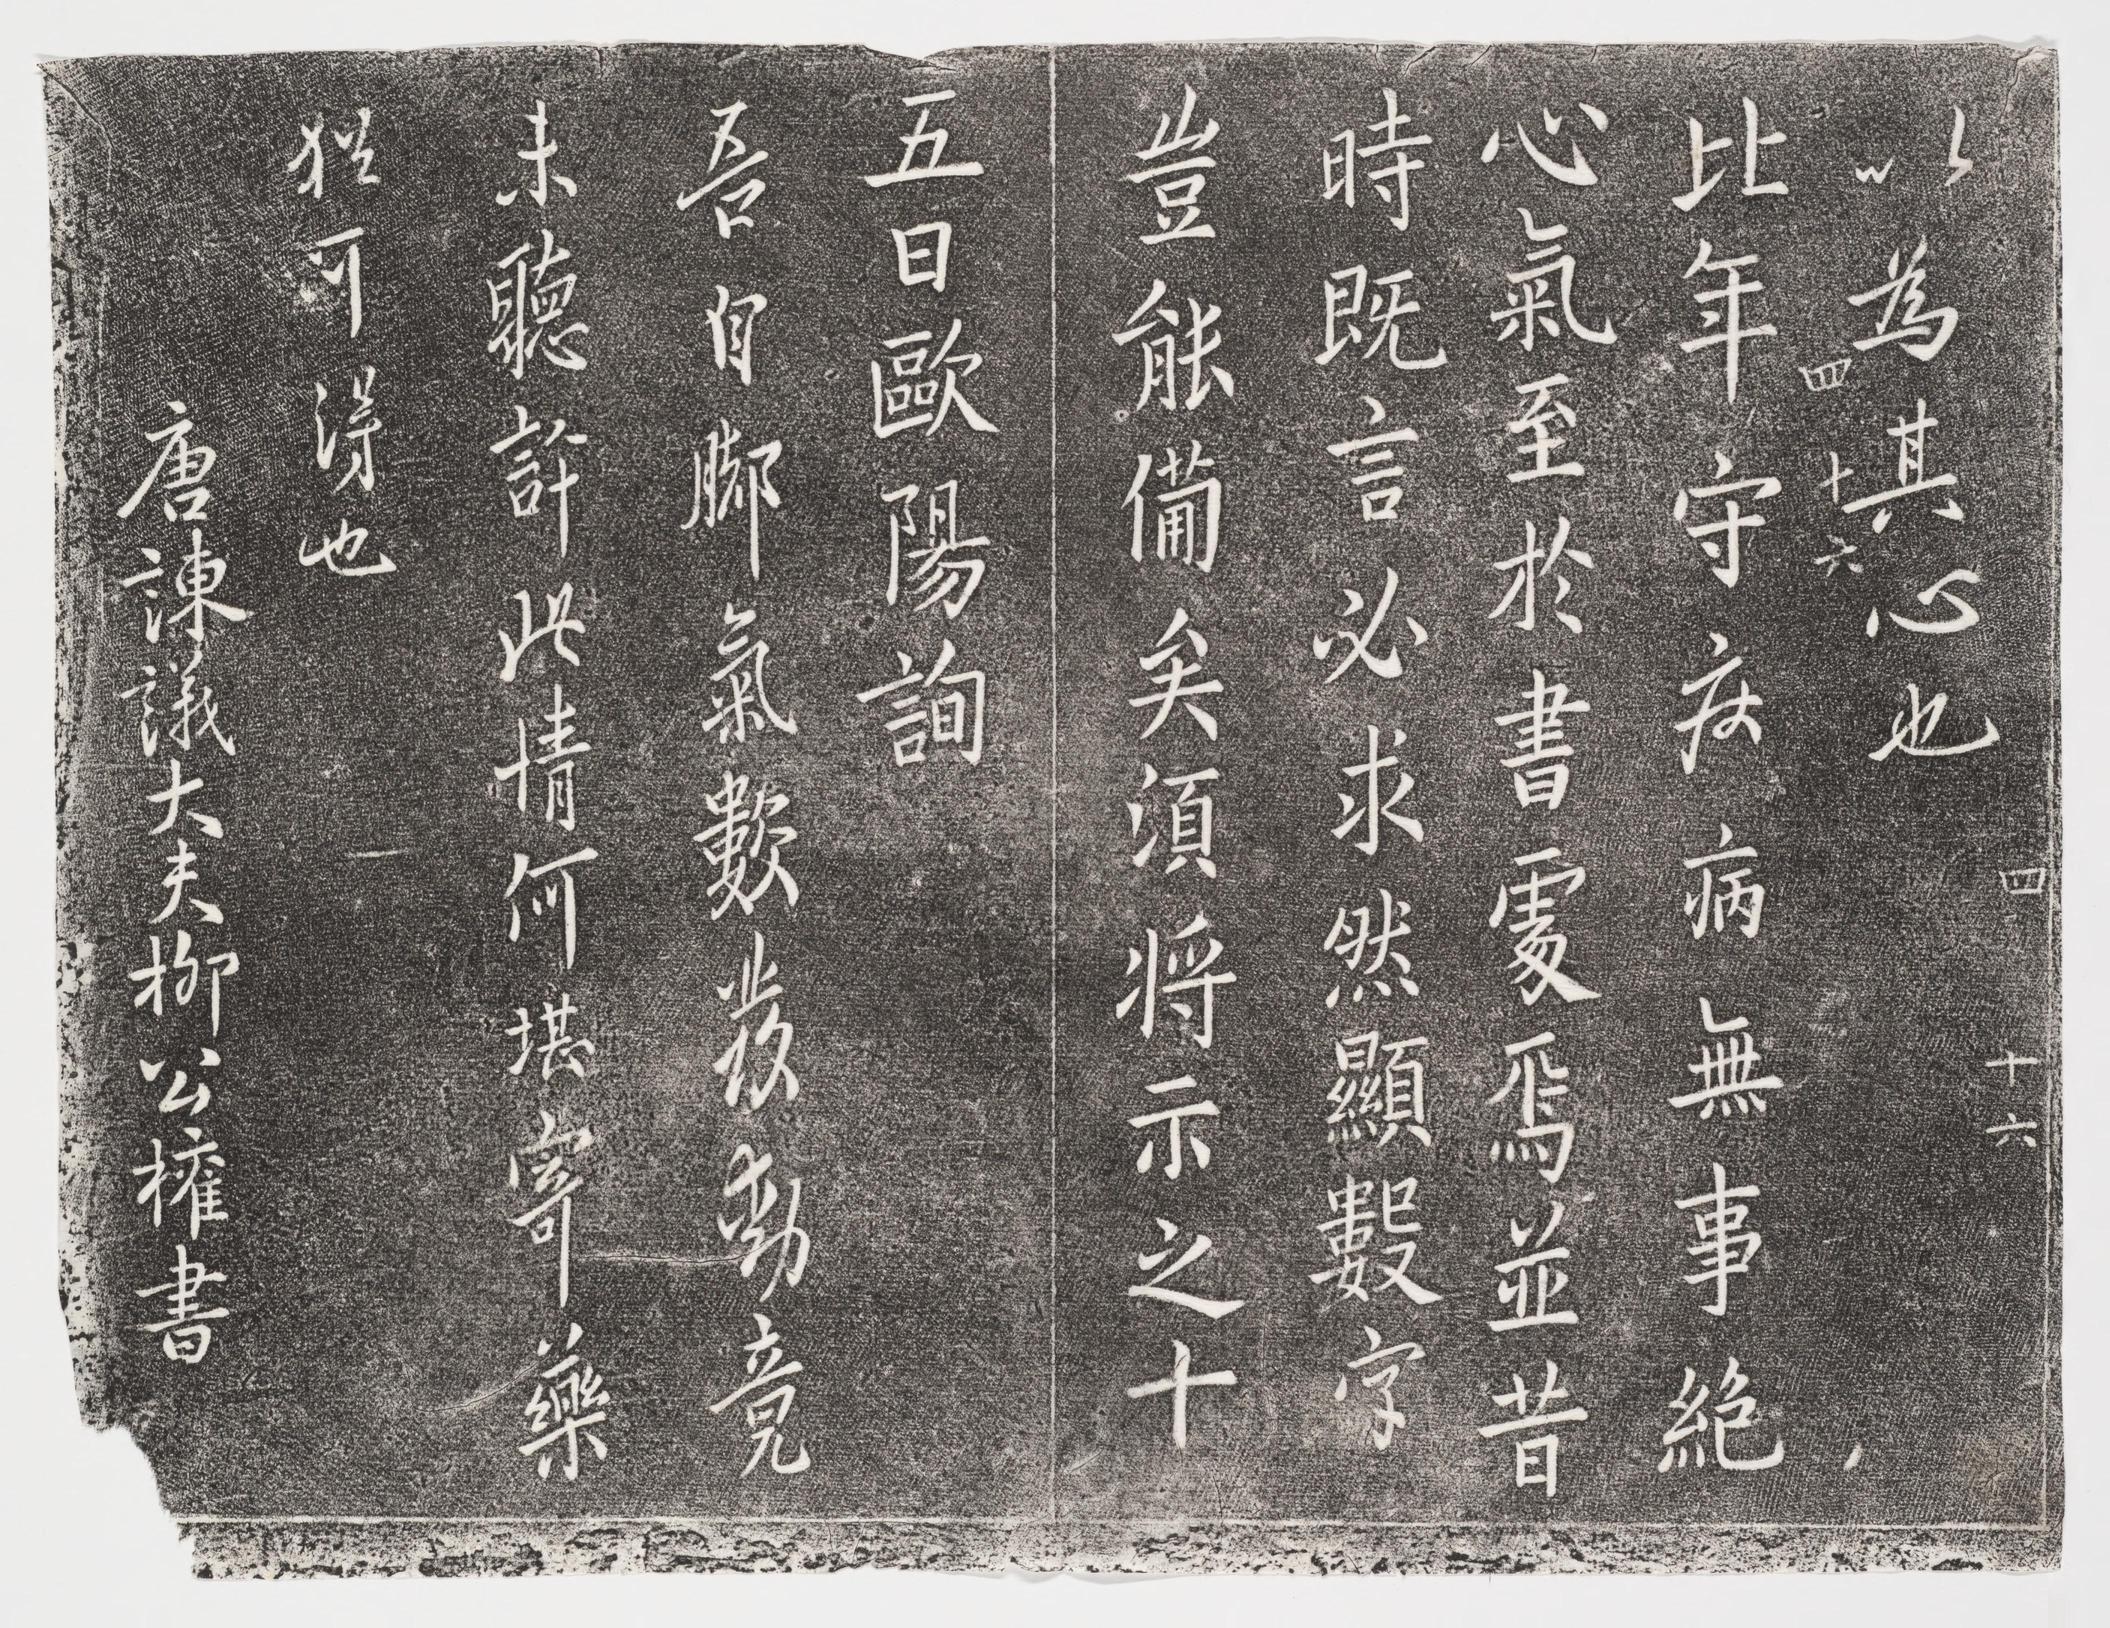 四 十六
以為其心也
四 十六
比年守疾病無事絕
心氣至於書處焉並昔
時既言必求然顯數字
豈能備矣須將示之十
五日歐陽詢
吾自脚氣數發動竟
未聽許此情何堪寄藥
猶可得也
唐諫議大夫柳公權書